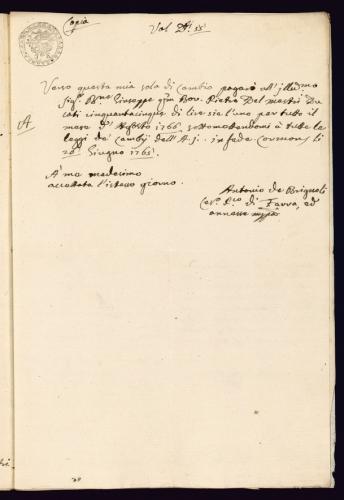 Copia
Val D.i 55
A
Verso questa mia sola di cambio pagarò all'Illmo
Sig.r Bne Giuseppe qm Bon. Pietro Del mestri Du
cati cinquantacinque di lire sie l'uno per tutto il
mese d'Agosto 1766 sottomettendomi à tutte le
leggi de Cambj dell'A.J. in fede Cormons li
20 Giugno 1765.
A' mo medesimo
accettata l'istesso giorno.
Antonio de Brignoli
di Farra, ed
annesse mppa